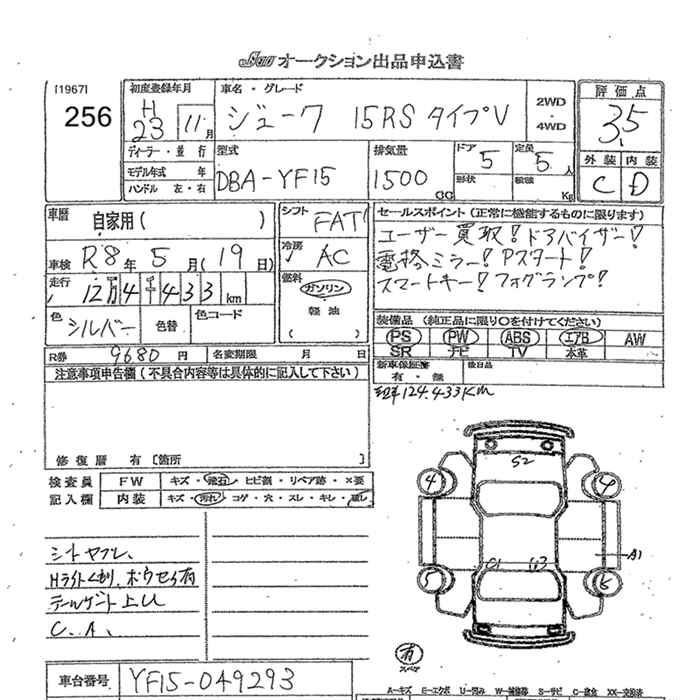 オークション出品申込書
[1967]
256
初度登録年月
H
23 11月
車名・グレード
ジューク 15RS タイプV
2WD
・
4WD
評価点
3.5
外装 内装
C D
ディーラー・並行
モデル年式 年
ハンドル 左・右
型式
DBA-YF15
排気量
1500
CC
ドア
5
形状
定員
5人
積載
Kg
車歴
自家用( )
車検 R8年5月(19日)
走行
12万4千433km
色
シルバー
色替
色コード
シフト
FAT
冷房
AC
燃料
ガソリン
・
軽油
( )
セールスポイント(正常に機能するものに限ります)
ユーザー買取!ドアバイザー!
電格ミラー!Pスタート!
スマートキー!フォグランプ!
装備品(純正品に限り○を付けてください)
PS PW ABS エアB AW
SR ナビ TV 本革
新車保証書
有・無
後日品
R券 9680円
名変期限 月 日
124.433Km
注意事項申告欄(不具合内容等は具体的に記入して下さい)
修復歴 有[箇所 ]
検査員
記入欄
FW キズ・飛石・ヒビ割・リペア跡・×要
内装 キズ・汚れ・コゲ・穴・スレ・キレ・
シートヤブレ、
Hライトくもり、
C.A、
車台番号 YF15-049293
S2
4 4
A1
5 6
有
A-キズ E-エクボ U-凹み W-補修跡 S-サビ C-腐食 XX-交換済